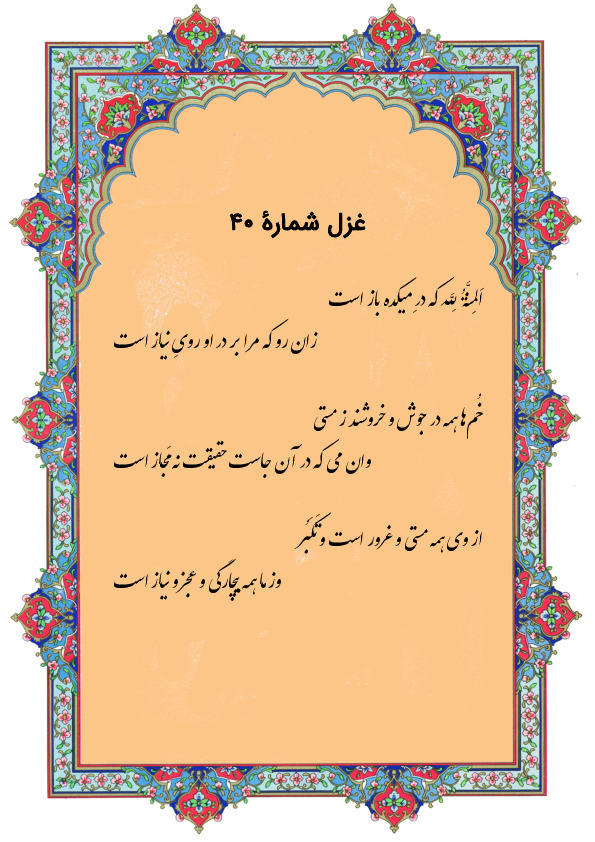 غزل شمارهٔ ۴۰
اَلمِنَّةُ لِلَّه که در ِمیکده باز است
زان رو که مرا بر در او رویِ نیاز است
خُم‌ها همه در جوش و خروشند ز مستی
وان می که در آن جاست حقیقت نه مَجاز است
از وی همه مستی و غرور است و تَکَبُّر
وز ما همه بیچارگی و عجز و نیاز است